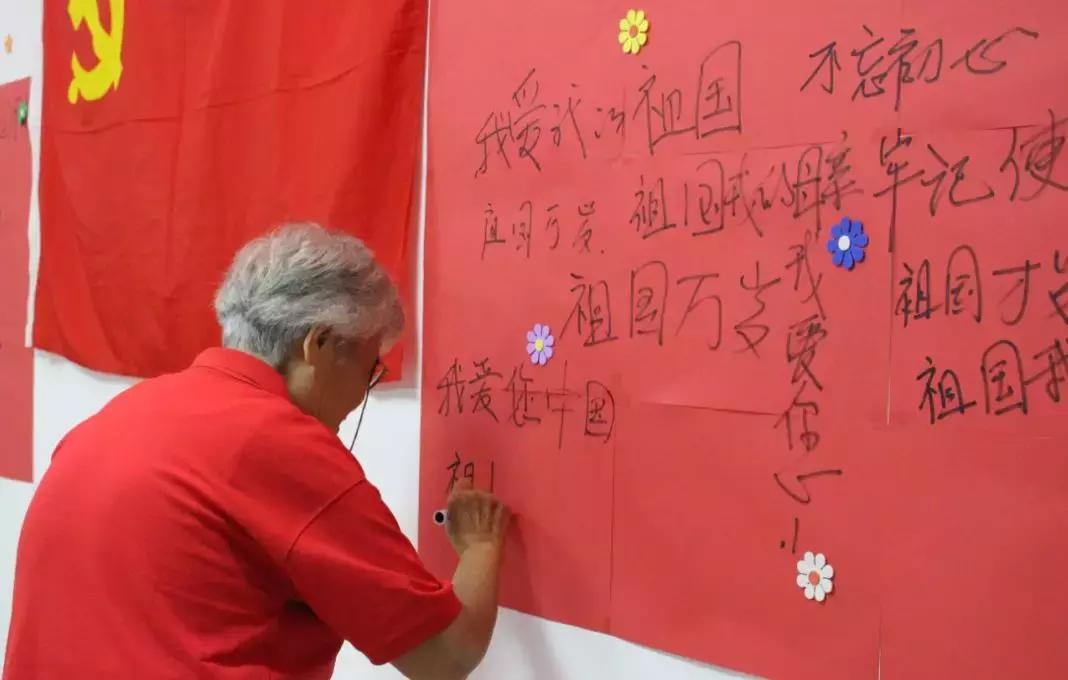 我爱我的祖国
不忘初心
祖国我的母亲
牢记使
国万岁
祖国万岁
我爱你
祖国万岁
祖国我
我爱您中国
祖